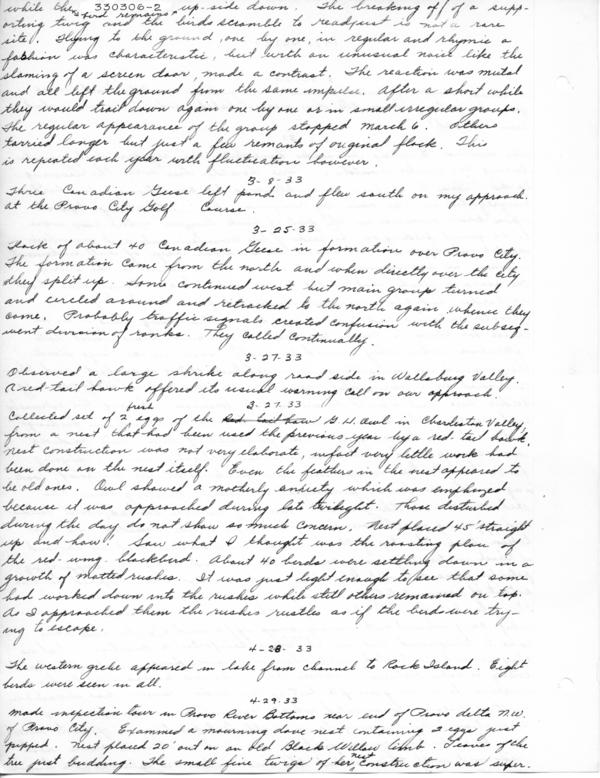 while the 330306-2 up-side down. The breaking of/of a supp-
bird remains
orting twig and the birds scramble to readjust is not a rare
site. Flying to the ground, one by one, in regular and rhymic a
fashion was characteristic, but with an unusual noise like the
slaming of a screen door, made a contrast. The reaction was mutal
and all left the ground from the same impulse. After a short while
they would tail down again one by one or in small irregular groups.
The regular appearance of the group stopped March 6. Others
tarried longer but just a few remants of original flock. This
is repeated each year with fluctication however.
3-8-33
Three Canadian Geese left pond and flew south on my approach.
at the Provo City Golf Course.
3-25-33
Flock of about 40 Canadian Geese in formation over Provo City.
The formation came from the north and when directly over the city
they split up. Some continued west but main group turned
and circled around and retracked to the north again, whence they
come. Probably traffic signals created confusion with the subseq-
uent division of ranks. They called continually.
3-27-33
Observed a large shrike along road side in Wallsburg Valley.
A red-tail hawk offered its usual warning call on our approach.
3-27-33
fresh
Collected set of 2 eggs of the Red-tail haw G.H. Owl in Charleston Valley,
from a nest that had been used the previous year by a red-tail hawk.
Nest construction was not very elaborate, infact very little work had
been done on the nest itself. Even the feathers in the nest appeared to
be old ones. Owl showed a motherly anxiety which was emphized
because it was approached during late twilight. Those disturbed
during the day do not show so much concern. Nest placed 45' straight
up and how! Saw what I thought was the roosting place of
the red-wing blackbird. About 40 birds were settling down in a
growth of matted rushes. It was just light enough to see that some
had worked down into the rushes while still others remained on top.
As I approached them the rushes rustles as if the birds were try-
ing to escape.
4-28-33
The western grebe appeared in lake from channel to Rock Island. Eight
birds were seen in all.
4-29-33
Made inspection tour in Provo River Bottoms near end of Provo delta N.W.
of Provo City. Examined a mourning dove nest containing 2 eggs just
pipped. Nest placed 20' out on an old Black Willow limb. Leaves of the
tree just budding. The small fine twigs of her nest construction was super.